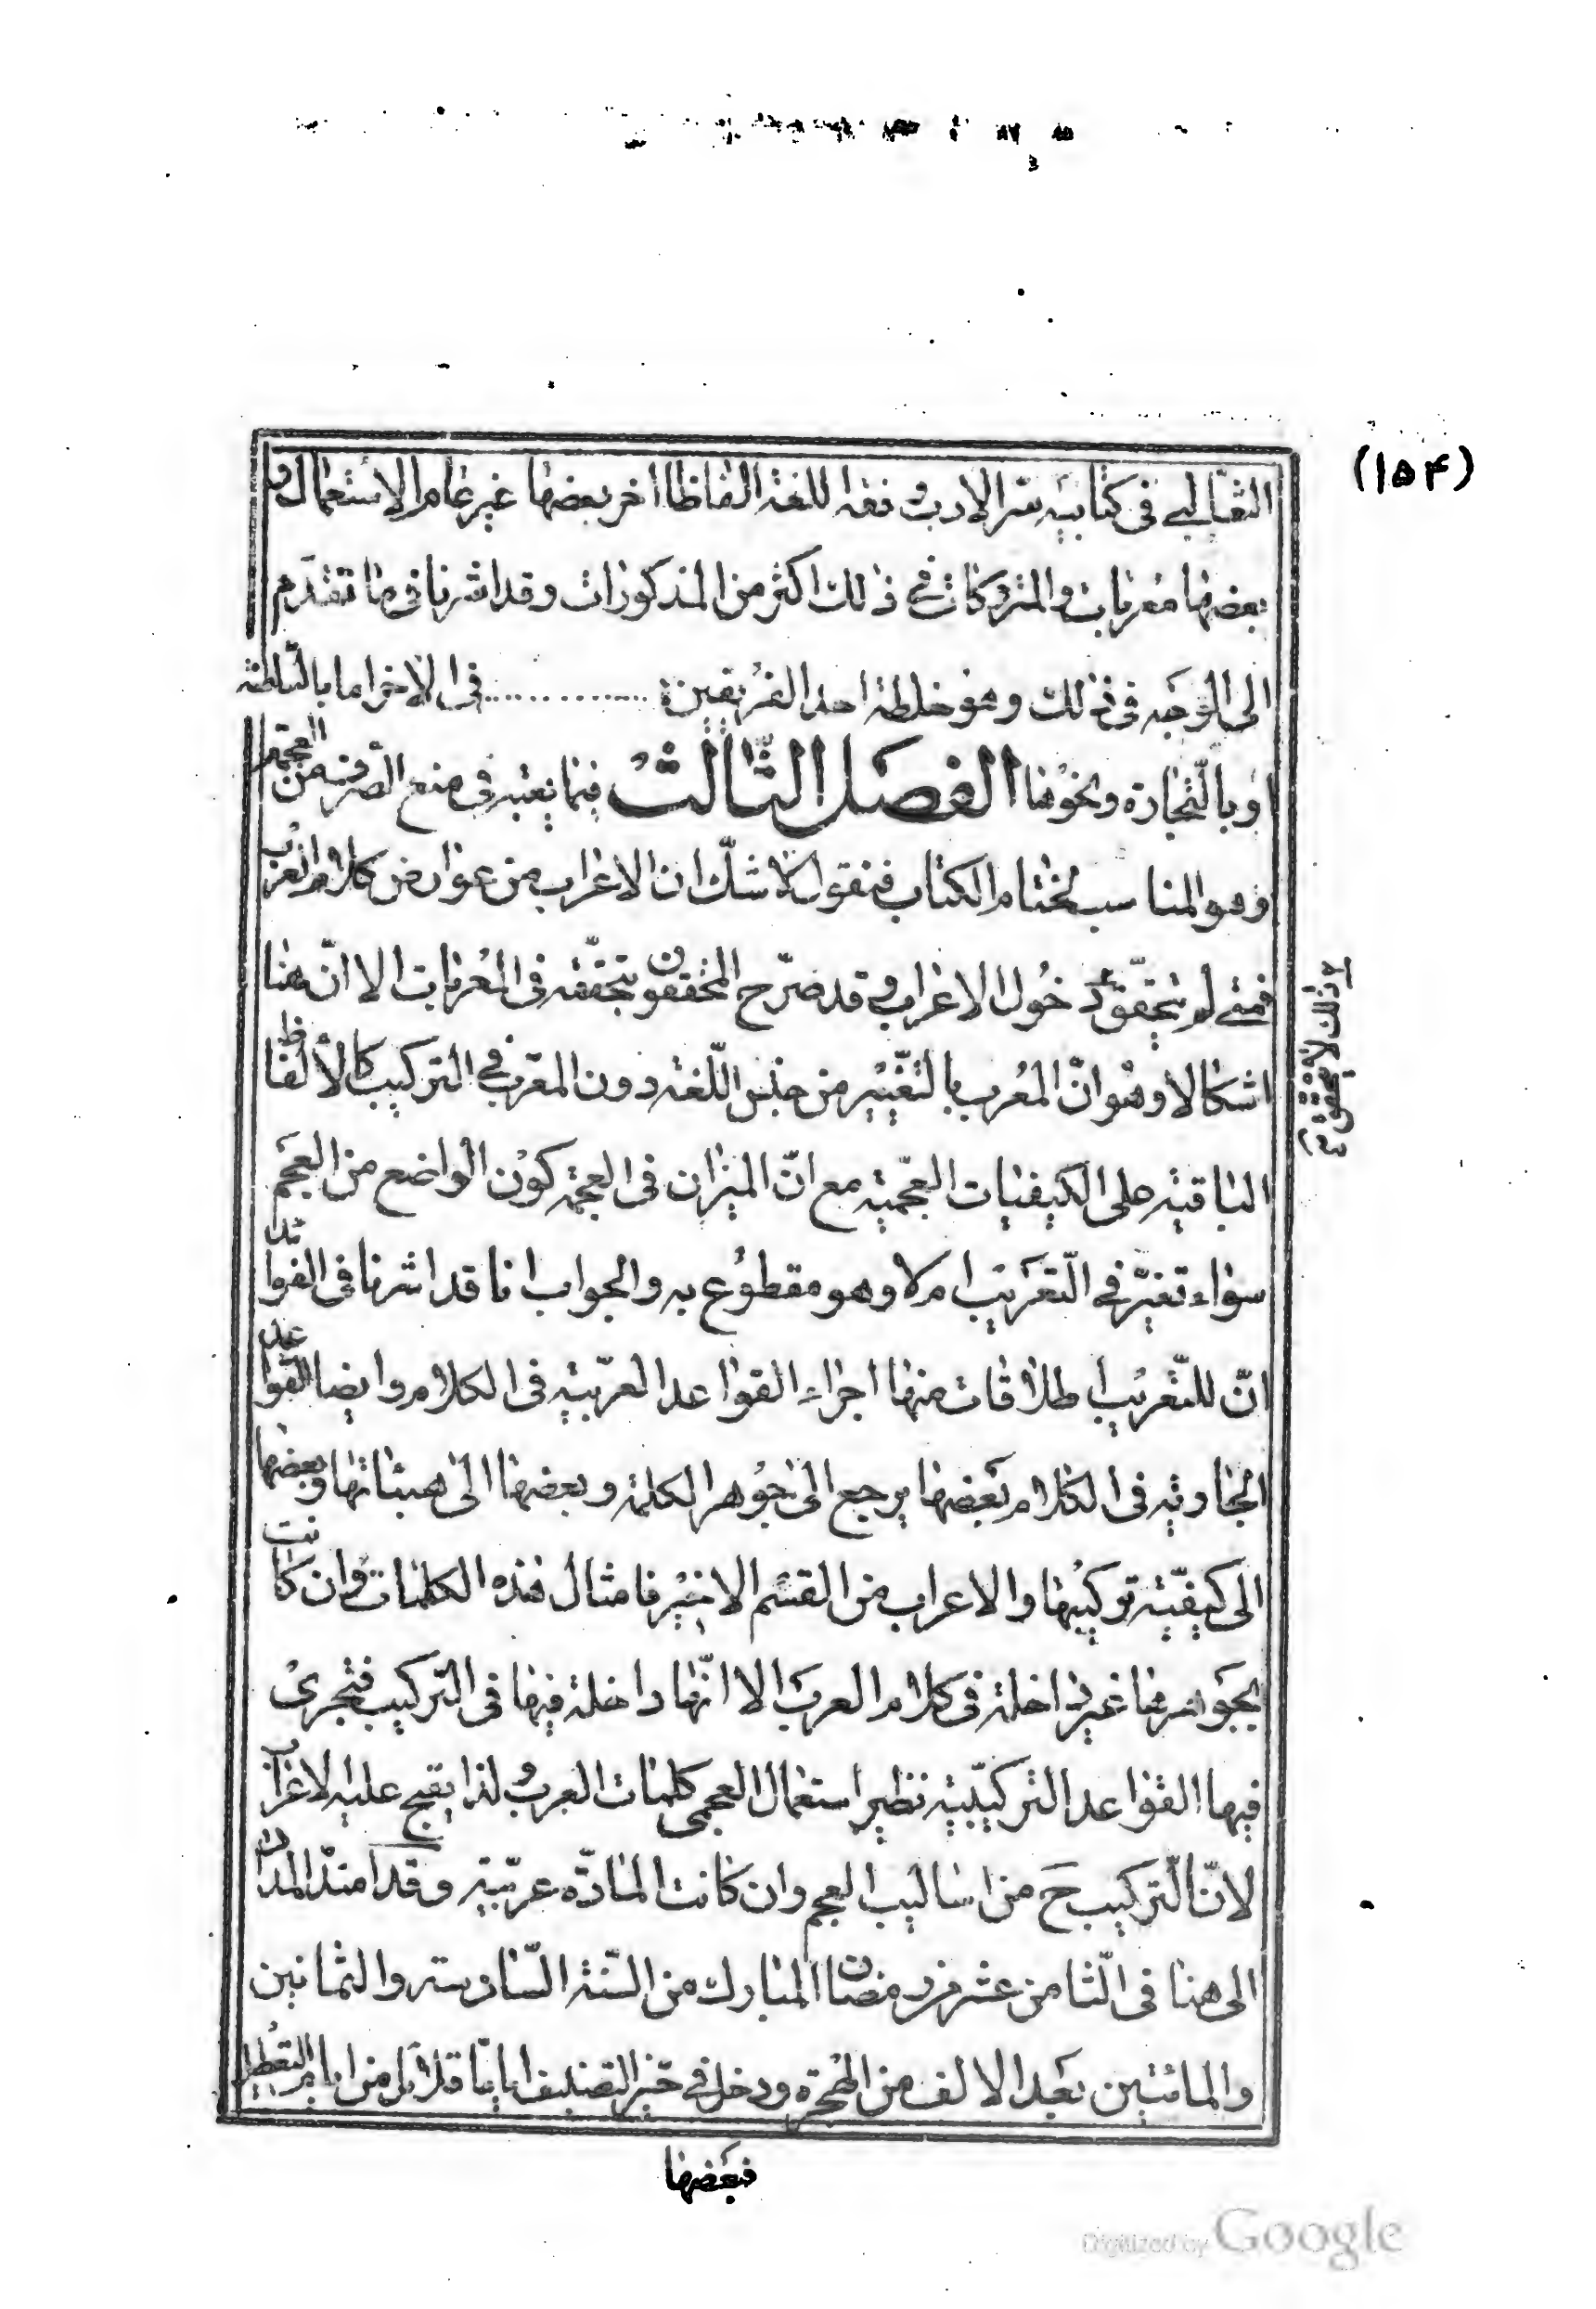 (١٥۴)
الثعالبى فى كتابيه سر الادب و فقه اللغة الفاظا اخر بعضها غير عام الاستعمال و
بعضها معربات و المتروكات فى ذلك اكثر من المذكورات و قد اشرنا فى ما تقدم
الى الوجه فى ذلك و هو خلطة احد الفريقين ............. فى الاخر اما بالسلطنة
او بالتجارة و نحوها الفصل الثالث فيما يعتبر فى منع الصرف من العجمة
و هو المناسب لختام الكتاب فنقول لا شك ان الاعراب من عوارض كلام العرب
فمتى لم يتحقق دخول الاعراب و قد صرح المحققون بتحققه فى المعربات الا ان هنا
اشكالا و هو ان المعرب بالتغيير من جنس اللغة دون المعرب فى التركيب كالالفاظ
الباقية على الكيفيات العجمية مع ان الميزان فى العجمة كون الواضع من العجم
سواء تغير فى التعريب ام لا و هو مقطوع به و الجواب انا قد اشرنا فى الفوائد
ان للتعريب اطلاقات منها اجراء القواعد العربية فى الكلام و ايضا القواعد
الجارية فى الكلام بعضها يرجع الى جوهر الكلمة و بعضها الى هيئاتها و بعضها
الى كيفية تركيبها و الاعراب من القسم الاخير فامثال هذه الكلمات و ان كانت
بجواهرها غير داخلة فى كلام العرب الا انها داخلة فيها فى التركيب فتجرى
فيها القواعد التركيبية نظير استعمال العجمى كلمات العرب و لذا يقبح عليه الاعراب
لان التركيب ح من اساليب العجم و ان كانت المادة عربية و قد امتد المداد
الى هنا فى الثامن عشر من رمضان المبارك من السنة السادسة و الثمانين
و المائتين بعد الالف من الهجرة و دخل فى حيز التصنيف ايابا قلائل من ايام التعطيل
فبعضها
Digitized by Google